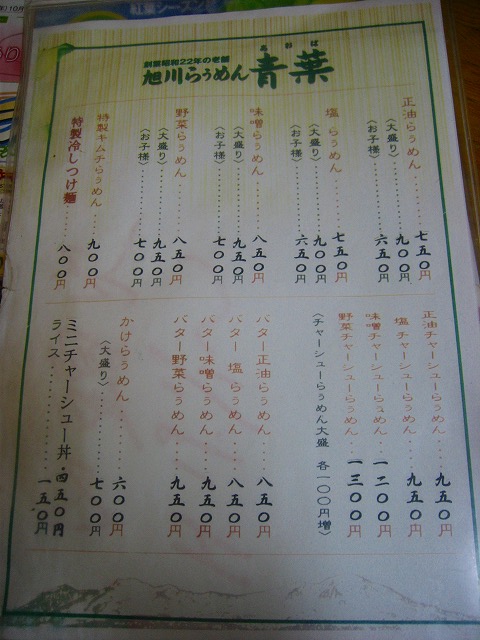 創業昭和22年の老舗
旭川らぅめん 青葉
あおば
正油らぅめん 七五〇円
(大盛り) 九〇〇円
(お子様) 六五〇円
塩らぅめん 七五〇円
(大盛り) 九〇〇円
(お子様) 六五〇円
味噌らぅめん 八五〇円
(大盛り) 九五〇円
(お子様) 七〇〇円
野菜らぅめん 八五〇円
(大盛り) 九五〇円
(お子様) 七〇〇円
特製キムチらぅめん 九〇〇円
特製冷しつけ麺 八〇〇円
正油チャーシューらぅめん 九五〇円
塩チャーシューらぅめん 九五〇円
味噌チャーシューらぅめん 一二〇〇円
野菜チャーシューらぅめん 一三〇〇円
(チャーシューらぅめん大盛 各一〇〇円増)
バター正油らぅめん 八五〇円
バター塩らぅめん 八五〇円
バター味噌らぅめん 九五〇円
バター野菜らぅめん 九五〇円
かけらぅめん 六〇〇円
(大盛り) 七〇〇円
ミニチャーシュー丼 四五〇円
ライス 一五〇円